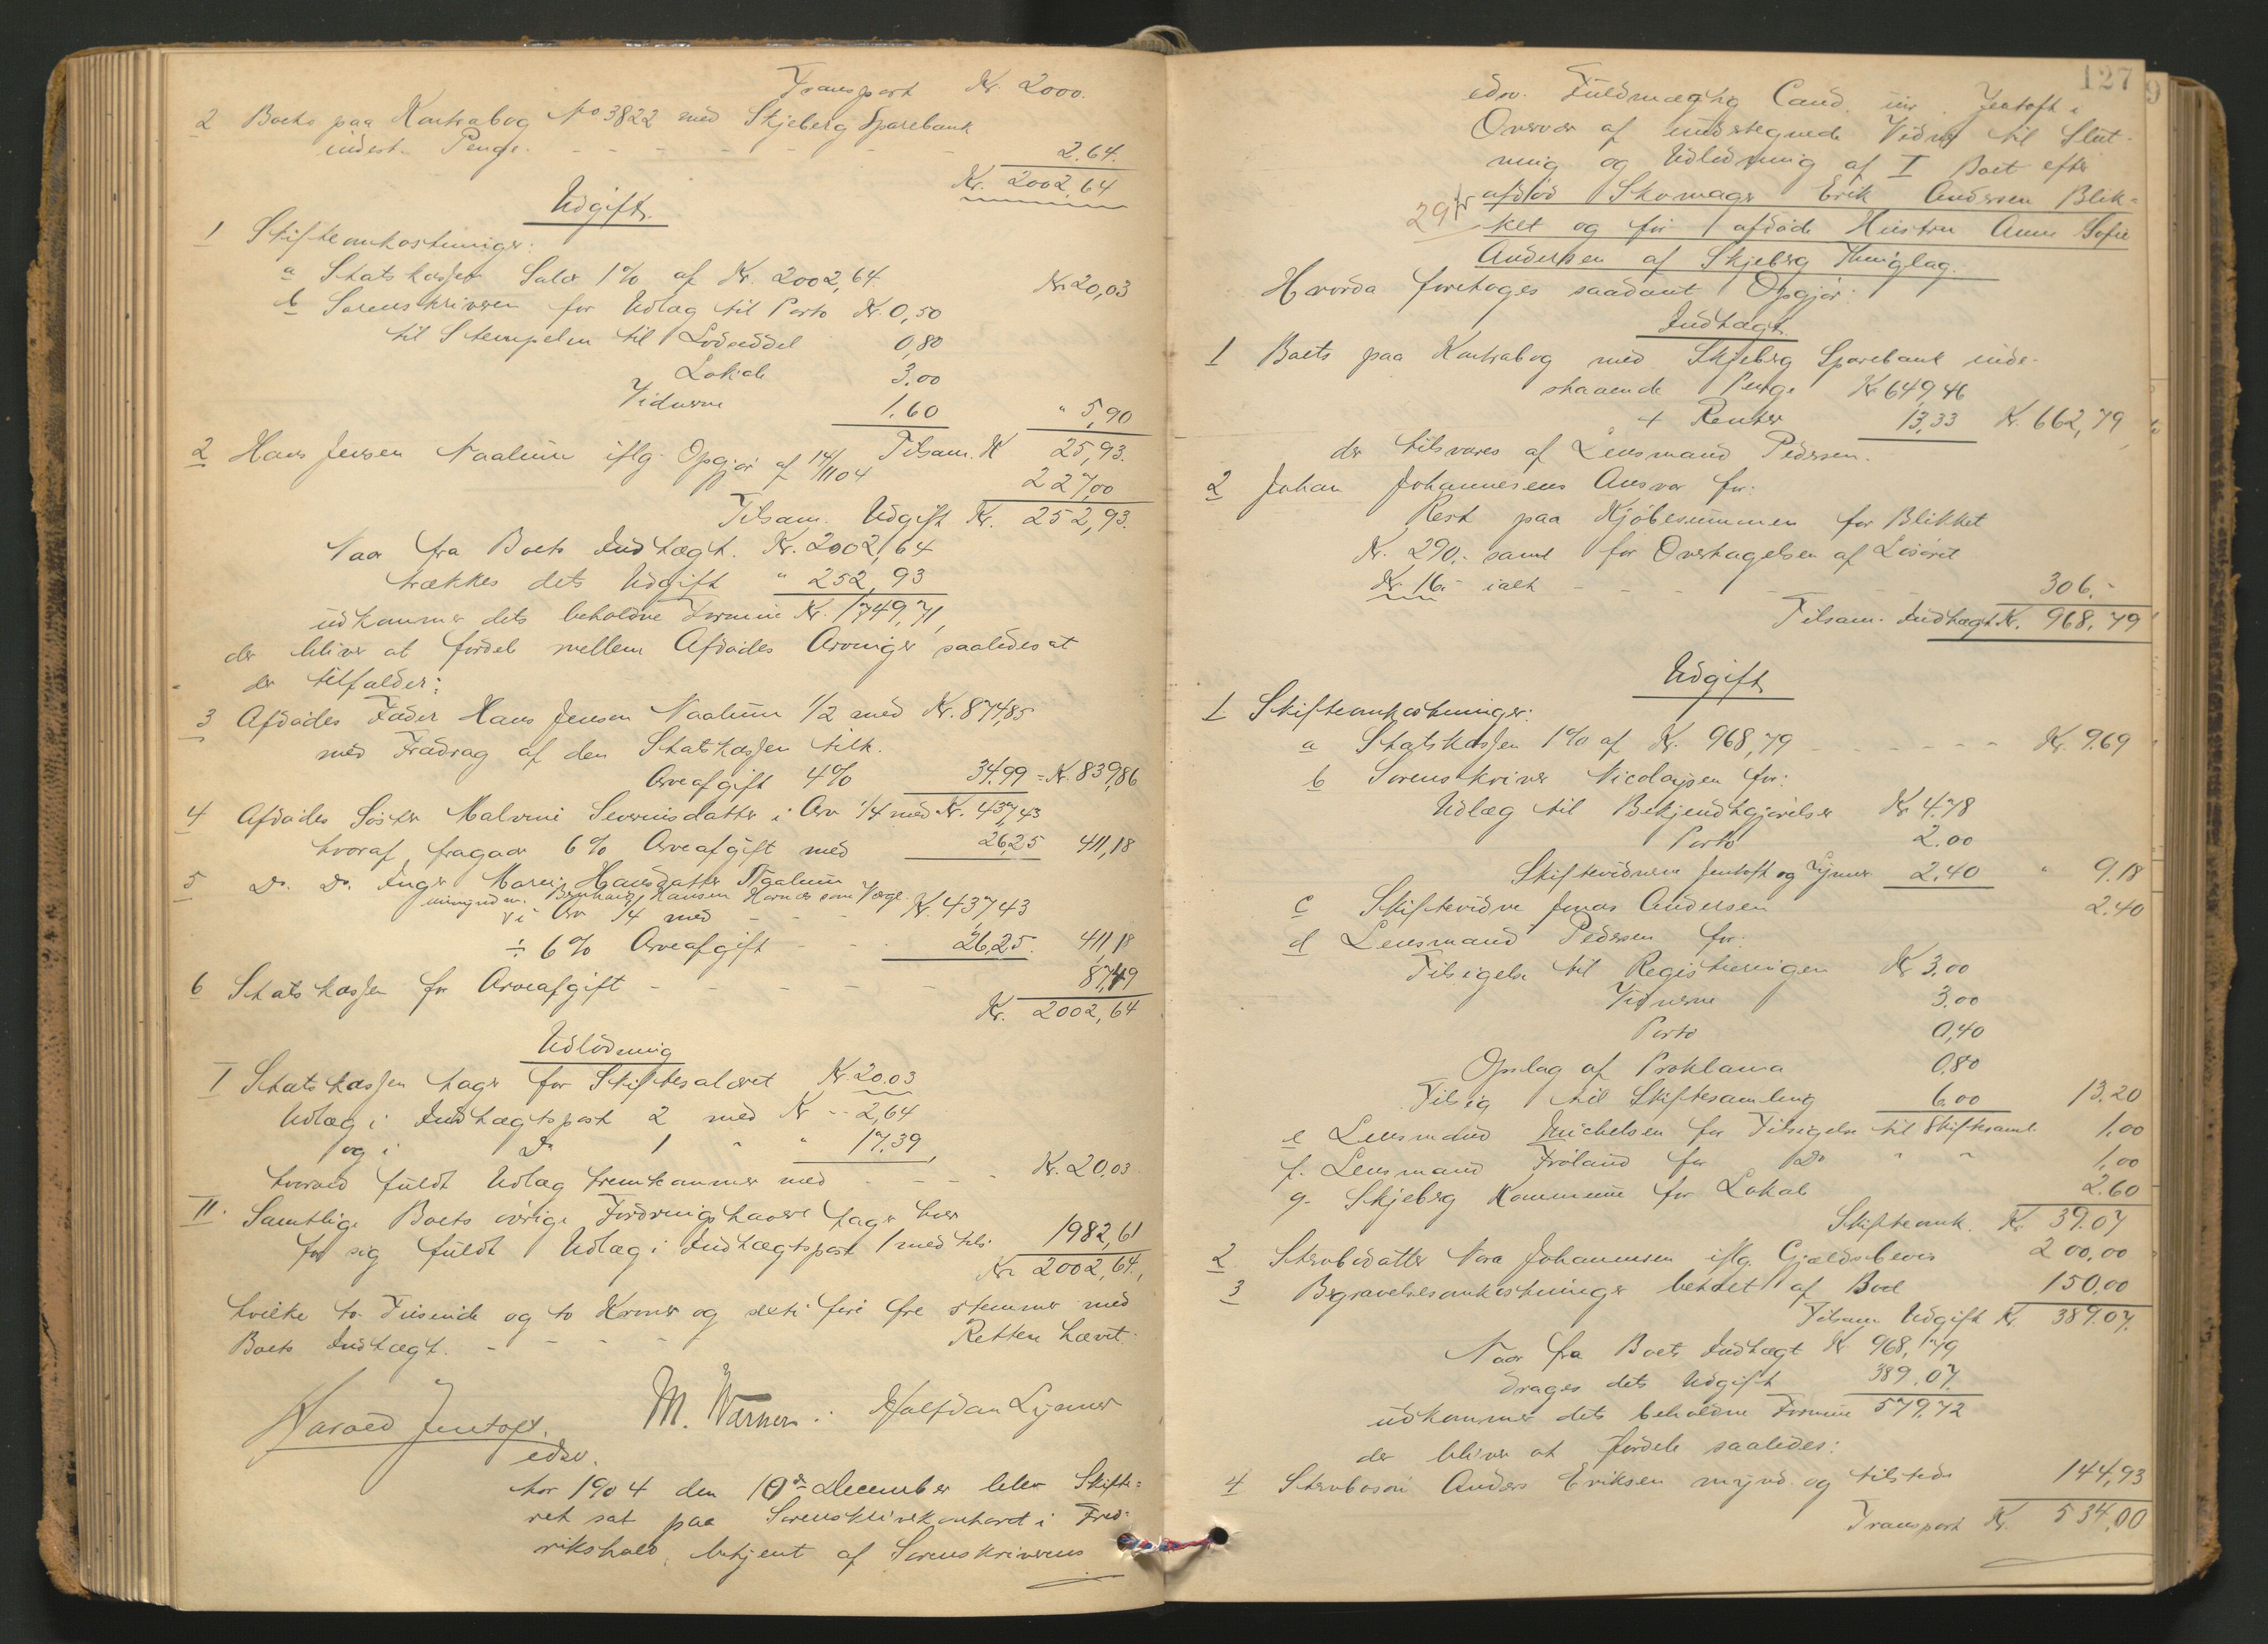 Transport Kr. 2000.
2 Boets paa Kontrabog No 3822 med Skjeberg Sparebank
indest. Penge. - - - - - - - 2.64.
Kr. 2002,64
Udgift.
1 Skifteomkostninger:
a Statskassen Salær 1% af Kr. 2002,64. Kr. 20,03
b Sorenskriveren for Udlæg til Porto Kr. 0,50
til Stempelm til Lodseddel 0,80
Lokale 3.00
Vidnerne 1.60 " 5,90
Tilsam. Kr 25,93.
2 Hans Jensen Naalum iflg. Opgjør af 14/11 04 227,00
Tilsam. Udgift Kr. 252,93.
Naar fra Boets Indtægt. Kr. 2002,64
trækkes dets Udgift " 252,93
udkommer dets beholdne Formue Kr. 1749,71,
der bliver at fordele mellem Afdødes Arvinger saaledes at
der tilfalder:
3 Afdødes Fader Hans Jensen Naalum 1/2 med Kr. 874,85
med Fradrag af den Statskassen tilk.
Arveafgift 4% 34.99 = Kr. 839,86
4 Afdødes Søster Malvine Severinsdatter i Arv 1/4 med Kr. 437,43
hvoraf fragaar 6% Arveafgift med 26,25 411,18
5 Do. Do. Inger Marie Hansdatter Naalum
umyndm. Bernhard Hansen Hornæs som Værge
i Arv 1/4 med - - - Kr. 437,43
÷ 6% Arveafgift - - - 26,25. 411,18
6 Statskassen for Arveafgift - - - - - - 87,49
Kr. 2002,64
Udlodning
I Statskassen tager for Skiftesalæret Kr. 20.03
Udlæg i Indtægtspost 2 med Kr - 2,64
og i Do 1 " " 17.39,
hvorved fuldt Udlæg fremkommer med - - - - Kr. 20,03
II. Samtlige Boets øvrige Fordringshavere tager hver
for sig fuldt Udlæg i Indtægtspost 1 med tils. 1982,61
Kr. 2002,64.,
hvilke to Tusinde og to Kroner og sexti fire Øre stemmer med
Boets Indtægt. - - - - Retten hævet.
Harald Jentoft. M. Warner. Halfdan Lymer
edsv.
Aar 1904 den 10de December blev Skifte=
ret sat paa Sorenskriverkontoret i Fred-
rikshald, betjent af Sorenskriverens
127
edsv. Fuldmægtig Cand. jur Jentoft i
Overvær af undertegnede Vidner til Slut-
ning og Udlodning af I Boet efter
29 afdød Skomager Erik Andersen Blik=
ket og før afdøde Hustru Anne Sofie
Andersen af Skjeberg Thinglag.
Hvorda foretoges saadant Opgjør:
Indtægt.
1 Boets paa Kontrabog med Skjeberg Sparebank inde-
staaende Penge Kr 649,46
+ Renter 13,33 Kr. 662,79
der tilsvares af Lensmand Pedersen.
2 Johan Johannesens Ansvar for:
Rest paa Kjøbesummen for Blikket
Kr. 290.- samt for Overtagelsen af Løsøret
Kr. 16.- ialt - - - - - - 306.-
Tilsam. Indtægt Kr. 968,79
Udgift
1 Skifteomkostninger:
a Statskassen 1% af Kr. 968,79 - - - - - - Kr. 9.69
b Sorenskriver Nicolaysen for:
Udlæg til Bekjendtgjørelser Kr 4.78
Porto 2.00
Skiftevidnerne Jentoft og Lymer 2.40 " 9.18
c Skiftevidne Jonas Andersen 2.40
d Lensmand Pedersen for:
Tilsigelse til Registreringen Kr 3.00
Vidnerne 3.00
Porto 0,40
Opslag af Proklama 0.80
Tilsig til Skiftesamling 6.00 13.20
e Lensmand Michelsen for Tilsigelse til Skiftesaml. 1.00
f. Lensmand Frøland for Do " " 1,00
g. Skjeberg Kommune for Lokale 2.60
Skifteomk. Kr. 39.07
2 Stervbodatter Nora Johannesen iflg. Gjældsbevis 200.00
3 Begravelsesomkostninger betalt af Boet 150.00
Tilsam Udgift Kr. 389.07.
Naar fra Boets Indtægt Kr 968,79
drages dets Udgift 389.07.
udkommer dets beholdne Formue 579.72
der bliver at fordele saaledes:
4 Stervbosøn Anders Eriksen mynd. og tilstede 144,93
Transport Kr. 534,00